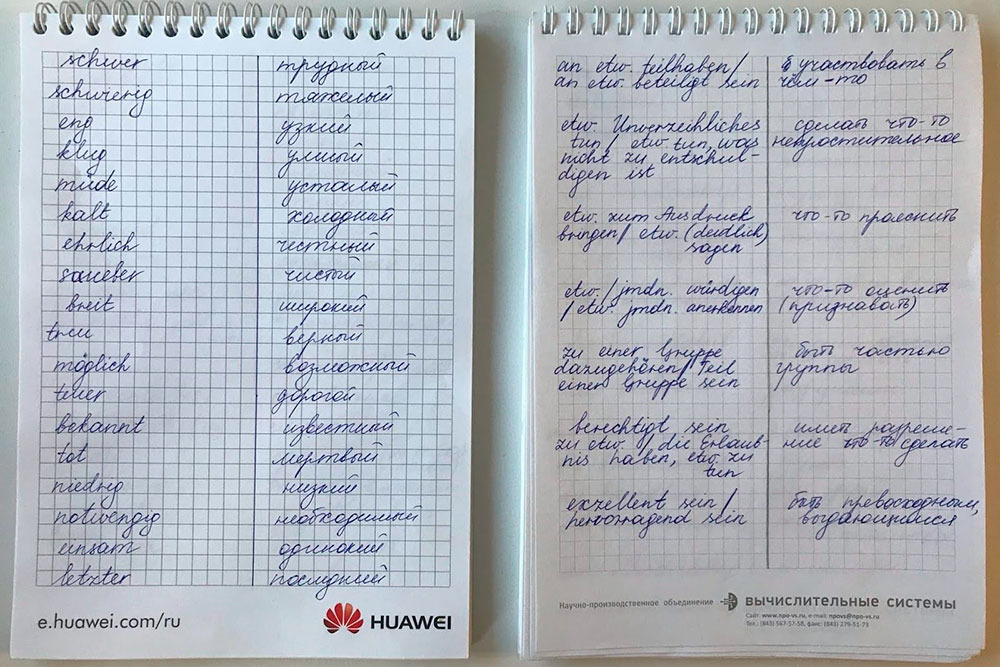 schwer трудный
schwierig тяжелый
eng узкий
klug умный
müde усталый
kalt холодный
ehrlich честный
saueber чистый
breit широкий
treu верный
möglich возможный
teuer дорогой
bekannt известный
tot мертвый
niedrig низкий
notwengig необходимый
einsam одинокий
letzter последный
e.huawei.com/ru
HUAWEI
an etw. teilhaben/
an etw. beteiligt sein
участвовать в
чём-то
etw. Unverzeihliches
tun / etw tun, was
nicht zu entschul-
digen ist
сделать что-то
непростительное
etw. zum Ausdruck
bringen/ etw. (deutlich)
sagen
что-то прояснить
etw./jmdn. würdigen
/etw. jmdn. anerkennen
что-то оценить
(признавать)
zu einer Gruppe
dazugehören/ Teil
einer Gruppe sein
быть частью
группы
berechtigt sein
zu etw. / die Erlaub-
nis haben, etw. zu
tun
имет разреше-
ние что-то сделать
exzellent sein /
hervorragend sein
быть превосходным,
выдающимся
Научно-производственное объединение ВЫЧИСЛИТЕЛЬНЫЕ СИСТЕМЫ
Сайт: www.npo-vs.ru, e-mail: npovs@npo-vs.ru
Тел.: (843) 567-57-58, факс: (843) 279-51-73